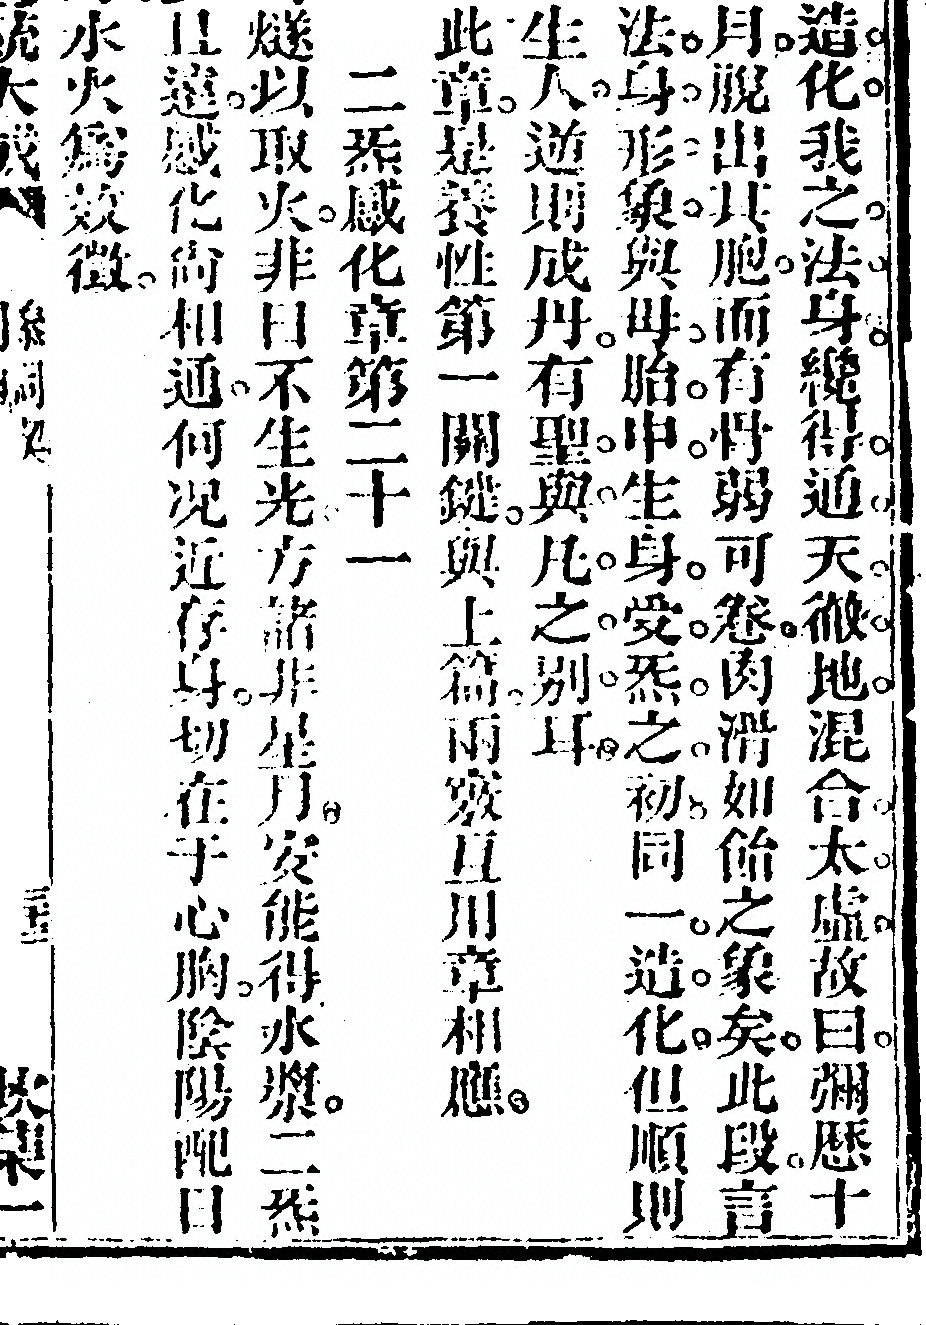 造化我之法身纔得通天徹地混合太虛故曰彌歷十
月脫出其胞而有骨弱可卷肉滑如飴之象矣此段言
法身形象與母胎中生身受炁之初同一造化但順則
生人逆則成丹有聖與凡之別耳
此章是養性第一關鍵與上篇兩竅互用章相應
二炁感化章第二十一
燧以取火非日不生光方諸非星月安能得水漿二炁
且遠感化尚相通何况近存身切在于心胸陰陽配日
水火爲效徵